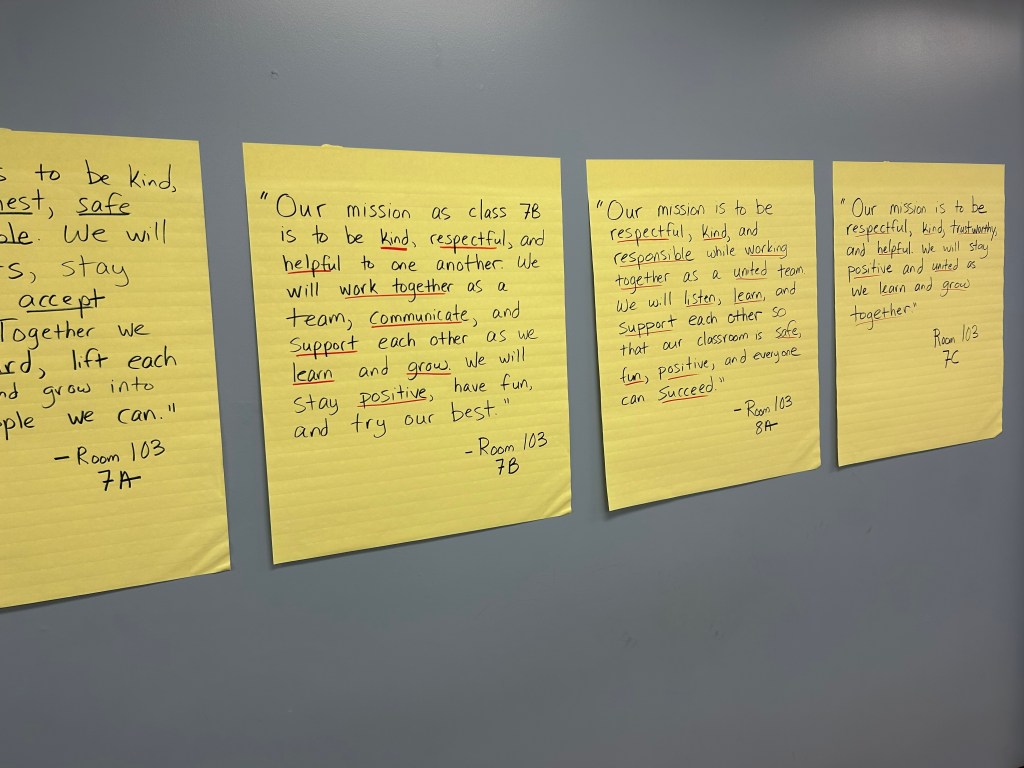 to be kind,
safe
We will
stay
accept
Together we
lift each
grow into
we can."
- Room 103
7A
"Our mission as class 7B
is to be kind, respectful, and
helpful to one another. We
will work together as a
team, communicate, and
support each other as we
learn and grow. We will
stay positive, have fun,
and try our best."
- Room 103
7B
"Our mission is to be
respectful, kind, and
responsible while working
together as a united team
We will listen, learn, and
support each other so
that our classroom is safe,
fun, positive, and everyone
can succeed."
- Room 103
8A
"Our mission is to be
respectful, kind, trustworthy,
and helpful. We will stay
positive and united as
we learn and grow
together."
Room 103
7C